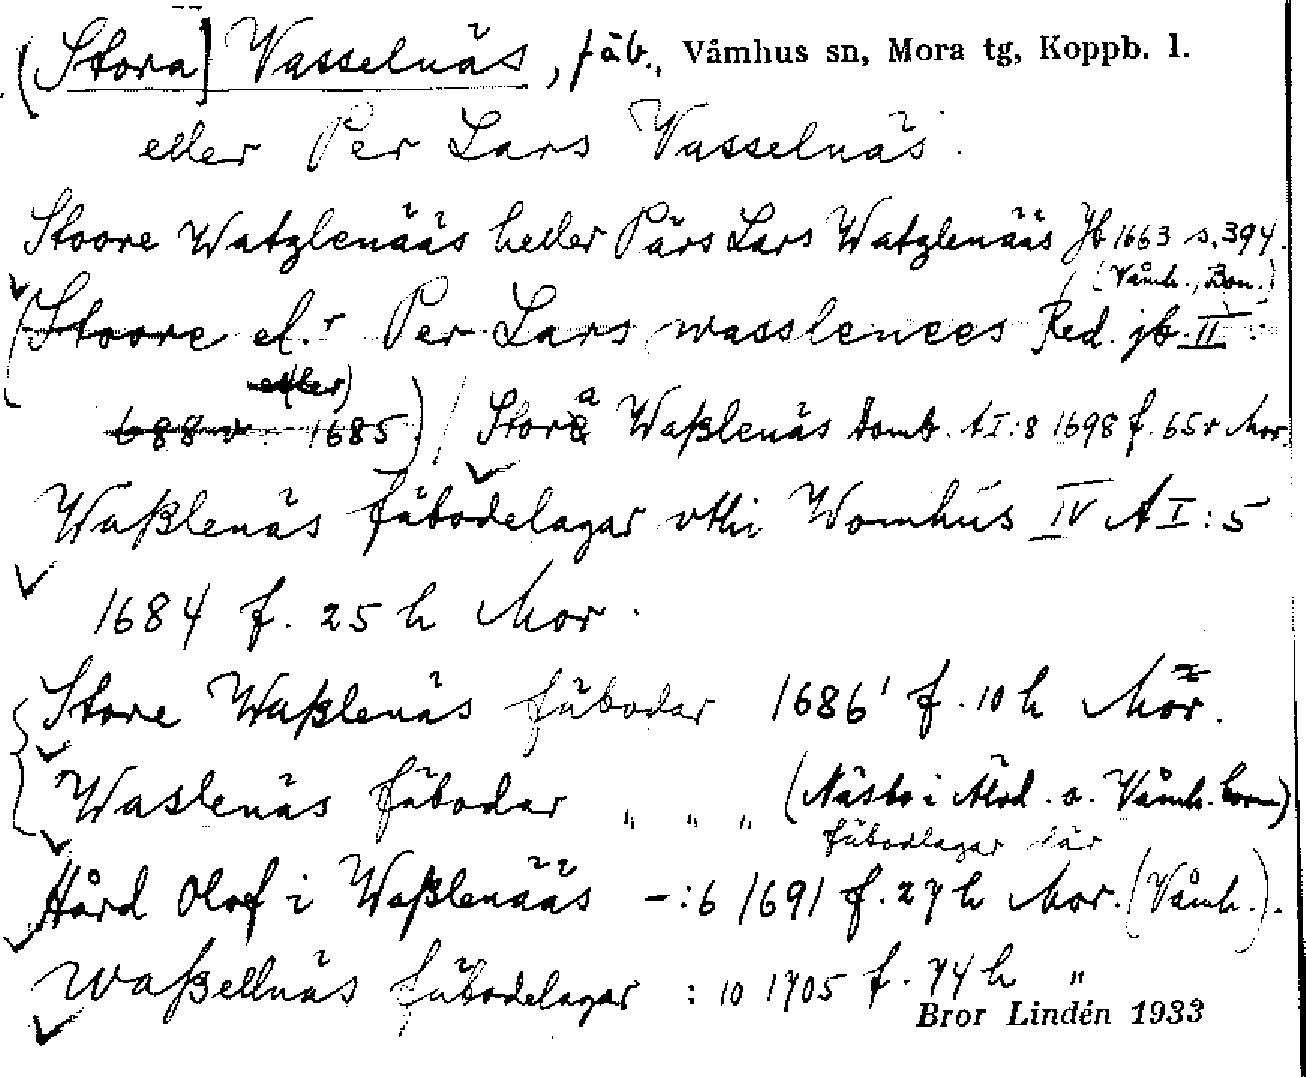 (Stora) Vasselnäs, fäb., Våmhus sn, Mora tg, Koppb. l.
eller Per Lars Vasselnäs.
Stoore Watzlenääs heller Pärs Lars Watzlenääs Jb 1663 s. 394.
(Våmh., Bon.)
(Stoore el.r Per Lars wasslenees Red. jb. II
eller)
688 v 1685) / Stora Waßlenäs Domb. AI:8 1698 f. 65 v Mor.
Waßlenäs fäbodelagar vthi Womhus IV AI:5
1684 f. 25 h Mor.
Store Waßlenäs fäbodar 1686 f. 10 h Mor.
Waslenäs fäbodar " " " (Näsbo i Älvd. o. Våmh.
fäbodlagar där
Hård Olof i Waßlenääs –:6 1691 f. 27 h Mor. (Våmh.).
Waßellnäs fäbodelagar :10 1705 f. 74 h "
Bror Lindén 1933